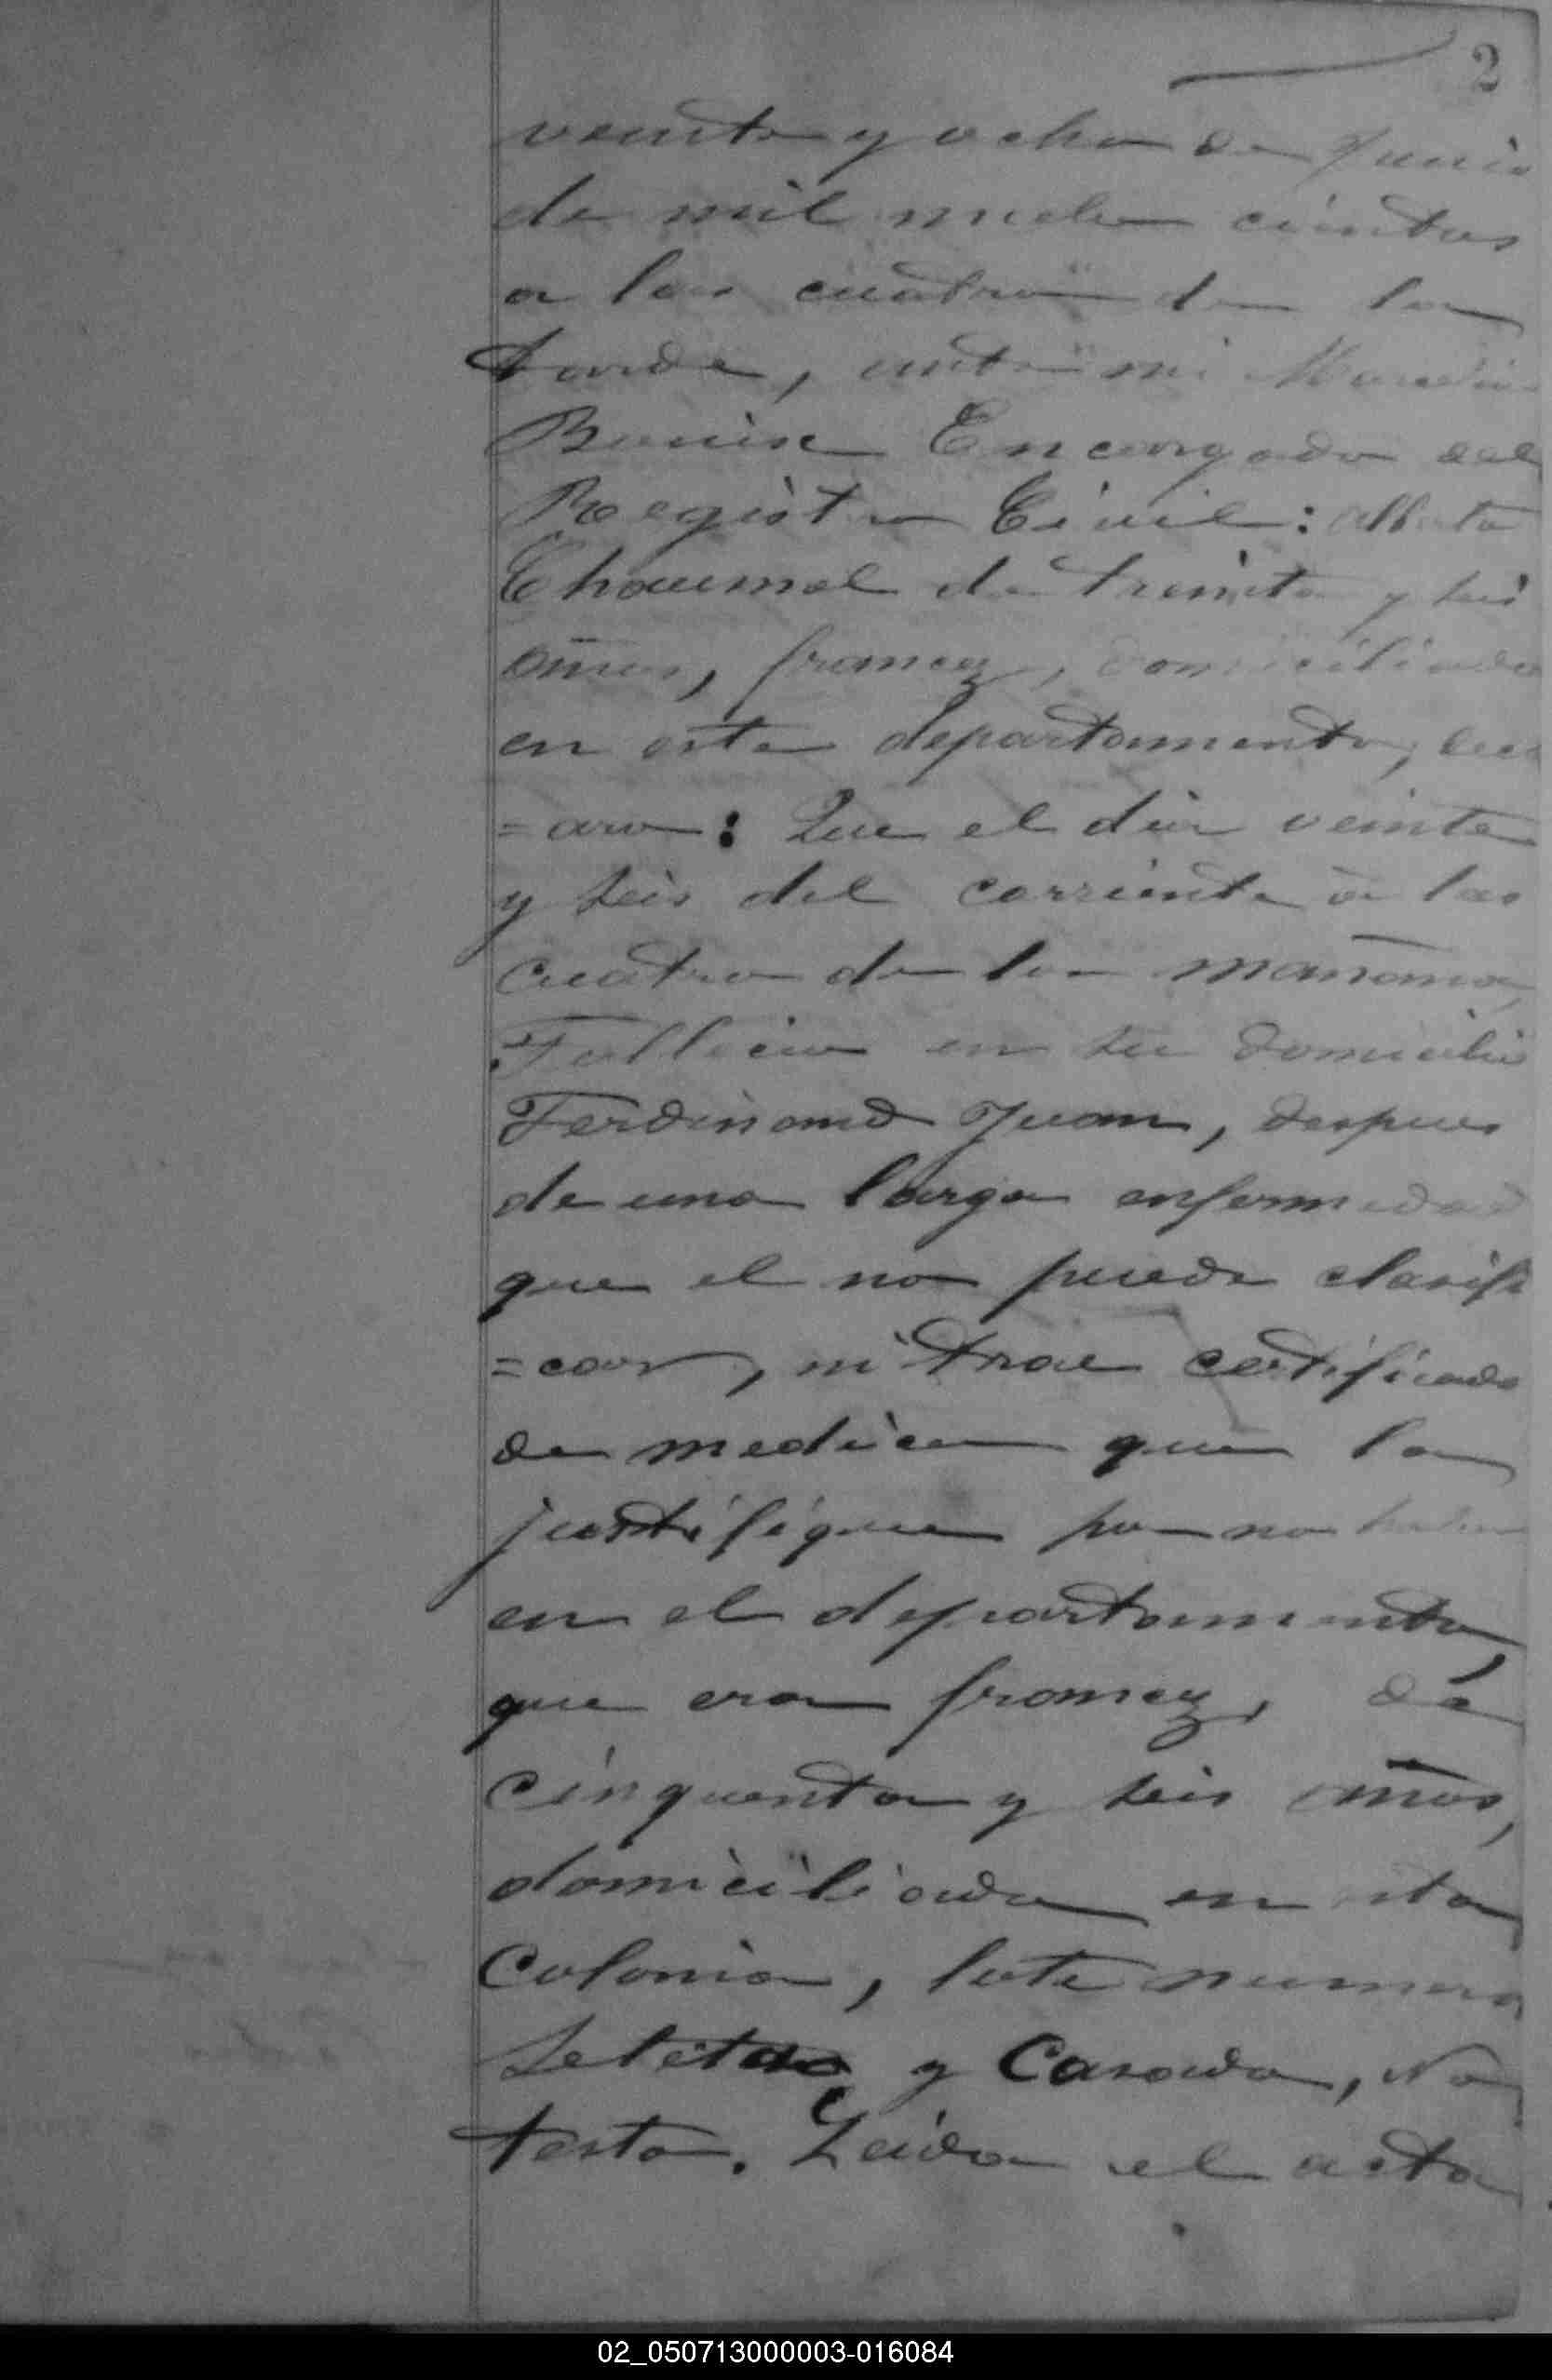 2
veinte y ocho de Junio
de mil ocho cientos
a las cuatro de la
tarde, ante mi
Encargado del
Registro Civil: Alberto
Chaumal de treinta y seis
años, francez, domiciliado
en este departamento, dec
=aro: Que el dia veinte
y seis del corriente a las
cuatro de la mañana,
Fallecio en su domicilio
Ferdinand Juan, despues
de una larga enfermedad
que el no puede clarifi
=car, ni trae certificado
de medico que la
justifique por no haber
en el departamento,
que era francez, de
cinquenta y seis años,
domiciliado en esta
Colonia, lote numero
y Casado, No
testo. Leida el acta
02_050713000003-016084